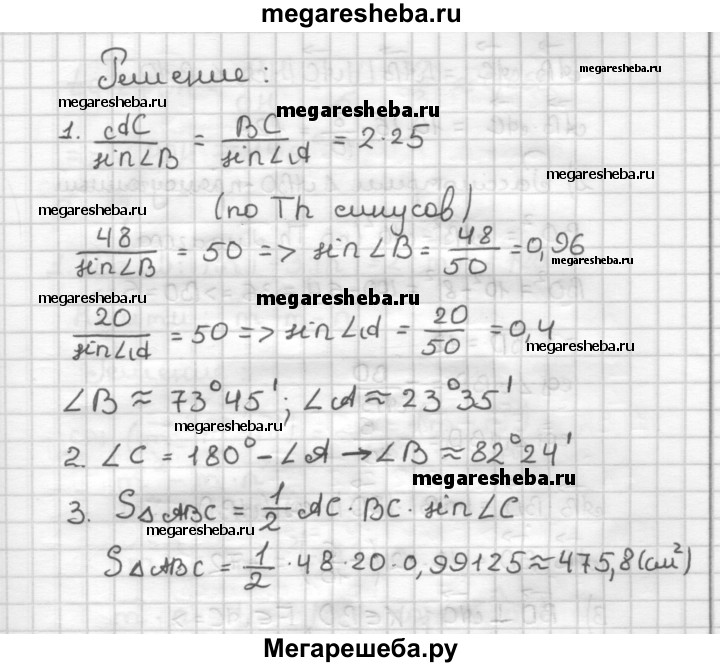 megaresheba.ru
Решение:
megaresheba.ru
megaresheba.ru
megaresheba.ru
1. AC/sin∠B = BC/sin∠A = 2·25
megaresheba.ru
megaresheba.ru
(по Th синусов)
48/sin∠B = 50 => sin∠B = 48/50 = 0,96
megaresheba.ru
megaresheba.ru
megaresheba.ru
20/sin∠A = 50 => sin∠A = 20/50 = 0,4
megaresheba.ru
∠B ≈ 73°45'; ∠A ≈ 23°35'
megaresheba.ru
2. ∠C = 180° - ∠A → ∠B ≈ 82°24'
megaresheba.ru
3. S△ABC = 1/2 AC · BC · sin∠C
megaresheba.ru
S△ABC = 1/2 · 48 · 20 · 0,99125 ≈ 475,8 (см²)
Мегарешеба.ру